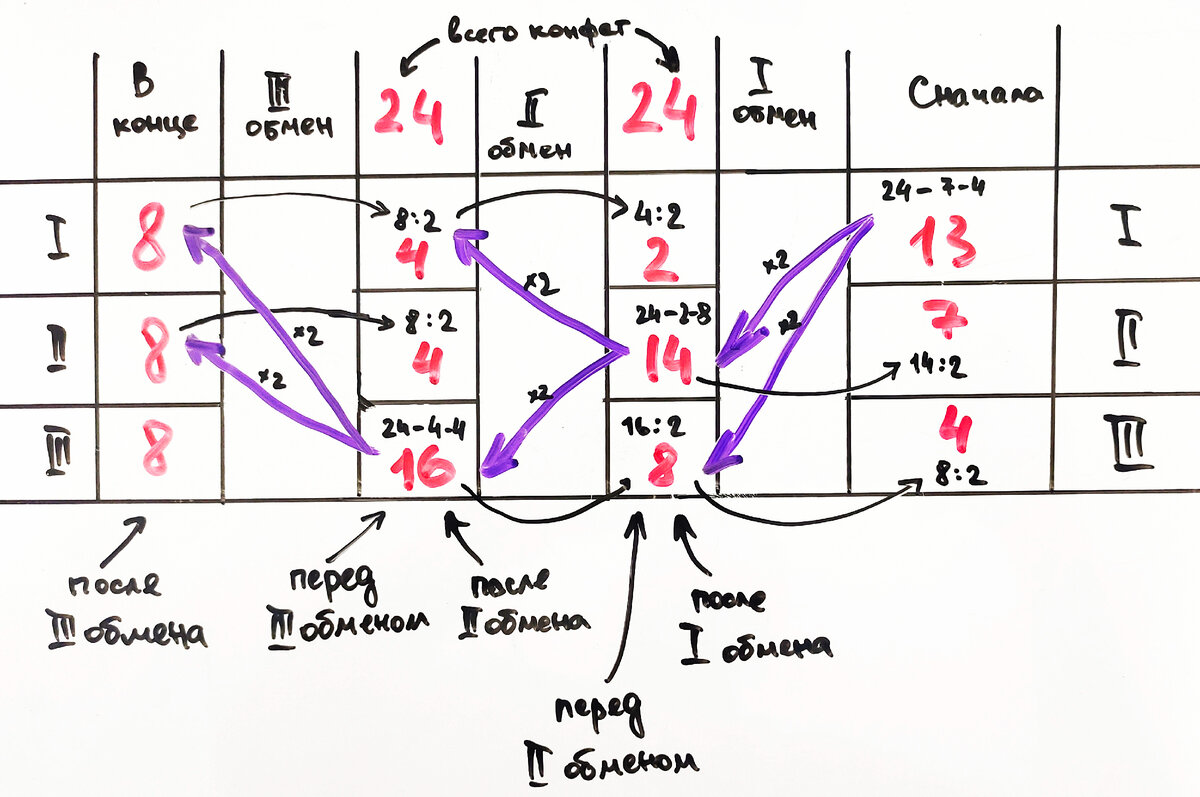 всего конфет
В
конце
III
обмен
24
II
обмен
24
I
обмен
Сначала
I
8
8:2
4
4:2
2
24-7-4
13
I
×2
×2
×2
II
8
8:2
4
24-2-8
14
7
14:2
II
×2
×2
×2
III
8
24-4-4
16
16:2
8
4
8:2
III
после
III обмена
перед
III обменом
после
II обмена
после
I обмена
перед
II обменом